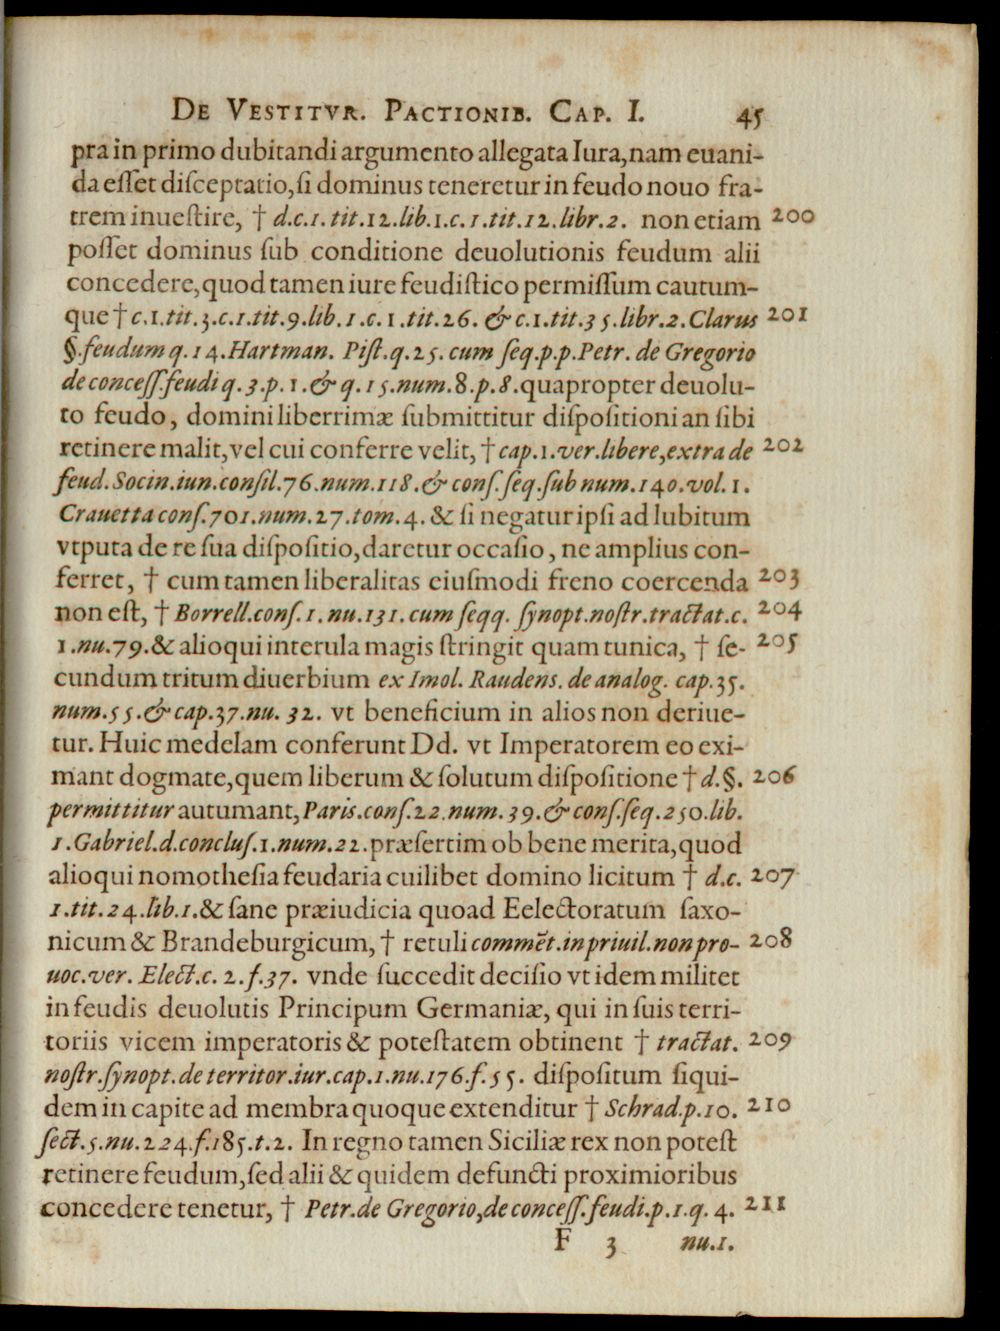 DE VESTITVR. PACTIONIB. CAP. I. 45
pra in primo dubitandi argumento allegata Iura, nam euani-
da eſſet diſceptatio, ſi dominus teneretur in feudo nouo fra-
trem inueſtire, † d.c.1. tit.12.lib.1.c.1.tit.12.libr.2. non etiam 200
poſſet dominus ſub conditione deuolutionis feudum alii
concedere, quod tamen iure feudiſtico permiſſum cautum-
que † c.1.tit.3.c.1.tit.9.lib.1.c.1.tit.26. & c.1.tit.35.libr.2.Clarus 201
§.feudum q.14.Hartman. Piſt.q.25. cum ſeq.p.p.Petr. de Gregorio
de conceſſ.feudi q.3.p.1.& q.15.num.8.p.8. quapropter deuolu-
to feudo, domini liberrimæ ſubmittitur diſpoſitioni an ſibi
retinere malit, vel cui conferre velit, † cap.1.ver.libere,extra de 202
feud. Socin.iun.conſil.76.num.118.& conſ.ſeq.ſub num.140.vol.1.
Crauetta conſ.701.num.27.tom.4. & ſi negatur ipſi ad lubitum
vtputa de re ſua diſpoſitio, daretur occaſio, ne amplius con-
ferret, † cum tamen liberalitas eiuſmodi freno coercenda 203
non eſt, † Borrell.conſ.1. nu.131. cum ſeqq. ſynopt.noſtr.tractat.c. 204
1.nu.79.& alioqui interula magis ſtringit quam tunica, † ſe- 205
cundum tritum diuerbium ex Imol. Raudens. de analog. cap.35.
num.55.& cap.37.nu. 32. vt beneficium in alios non deriue-
tur. Huic medelam conferunt Dd. vt Imperatorem eo exi-
mant dogmate, quem liberum & ſolutum diſpoſitione † d.§. 206
permittitur autumant, Paris.conſ.22.num.39.& conſ.ſeq.250.lib.
1.Gabriel.d.concluſ.1.num.22.præſertim ob bene merita, quod
alioqui nomotheſia feudaria cuilibet domino licitum † d.c. 207
1.tit.24.lib.1.& ſane præiudicia quoad Eelectoratum ſaxo-
nicum & Brandeburgicum, † retuli commēt.in priuil.non pro- 208
uoc.ver. Elect.c.2.f.37. vnde ſuccedit deciſio vt idem militet
in feudis deuolutis Principum Germaniæ, qui in ſuis terri-
toriis vicem imperatoris & poteſtatem obtinent † tractat. 209
noſtr.ſynopt.de territor.iur.cap.1.nu.176.f.55. diſpoſitum ſiqui-
dem in capite ad membra quoque extenditur † Schrad.p.10. 210
ſect.5.nu.224.f.185.t.2. In regno tamen Siciliæ rex non poteſt
retinere feudum, ſed alii & quidem defuncti proximioribus
concedere tenetur, † Petr.de Gregorio,de conceſſ.feudi.p.1.q.4. 211
F 3 nu.1.